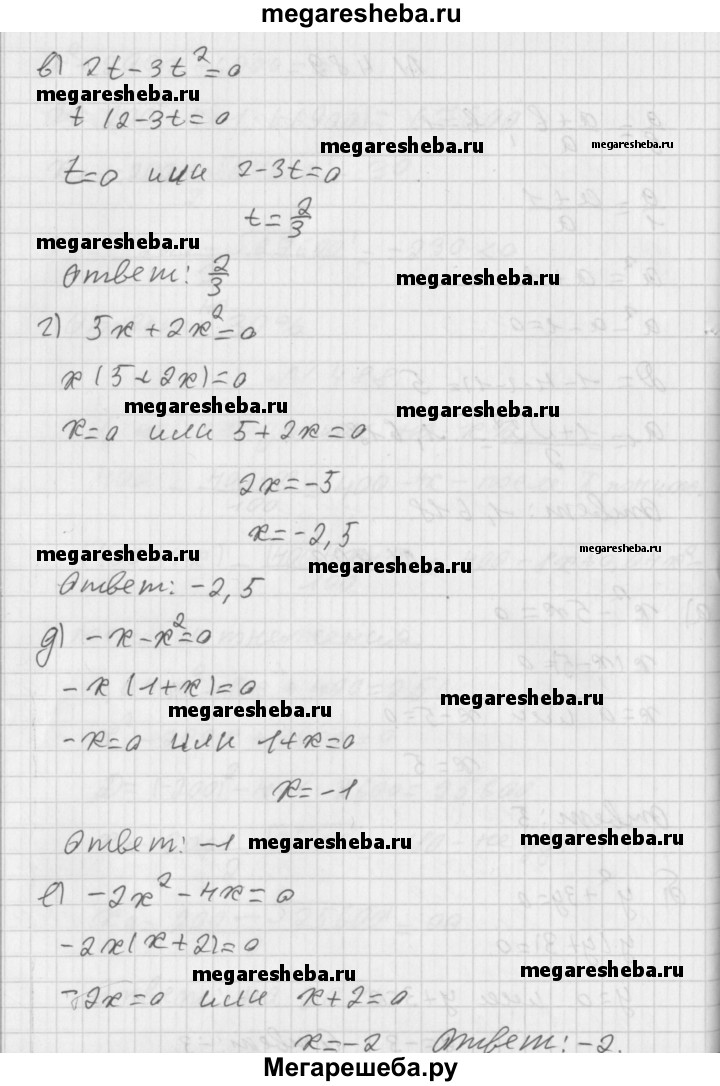 megaresheba.ru
в) 2t - 3t² = 0
megaresheba.ru
t (2 - 3t = 0
megaresheba.ru megaresheba.ru
t = 0 или 2 - 3t = 0
t = 2/3
megaresheba.ru
Ответ: 2/3
megaresheba.ru
г) 5x + 2x² = 0
x (5 + 2x) = 0
megaresheba.ru megaresheba.ru
x = 0 или 5 + 2x = 0
2x = -5
x = -2,5
megaresheba.ru megaresheba.ru megaresheba.ru
Ответ: -2,5
д) -x - x² = 0
-x (1 + x) = 0
megaresheba.ru megaresheba.ru
-x = 0 или 1 + x = 0
x = -1
Ответ: -1
megaresheba.ru megaresheba.ru
е) -2x² - 4x = 0
-2x (x + 2) = 0
megaresheba.ru megaresheba.ru
-2x = 0 или x + 2 = 0
x = -2 Ответ: -2.
Мегарешеба.ру